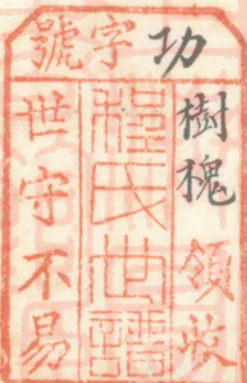 功字號
樹槐領收
程氏世譜
世守不易